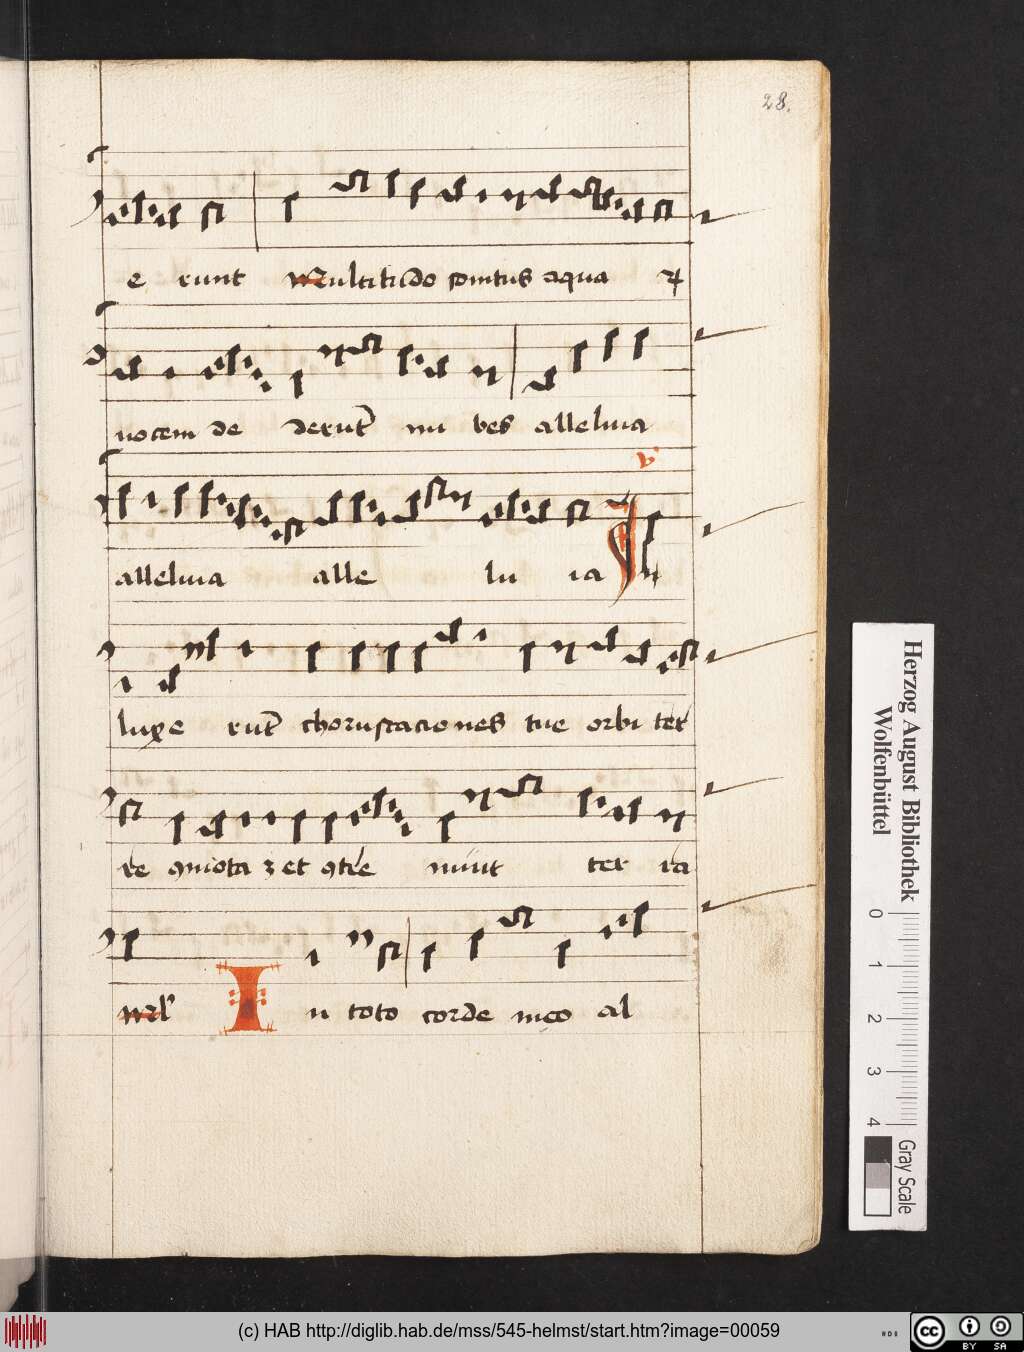 28.
e runt Multitudo sonitus aqua ꝝ
uocem de derut̄ nu bes alleluia
v̾
alleluia alle lu ia Il
luxe rut̄ choruscacio nes tue orbi ter
re ꝯmota ꝫ et ꝯtre muit ter ra
Mĺ
I n toto corde meo al
Herzog August Bibliothek
Wolfenbüttel
0 1 2 3 4
Gray Scale
(c) HAB http://diglib.hab.de/mss/545-helmst/start.htm?image=00059
cc BY SA